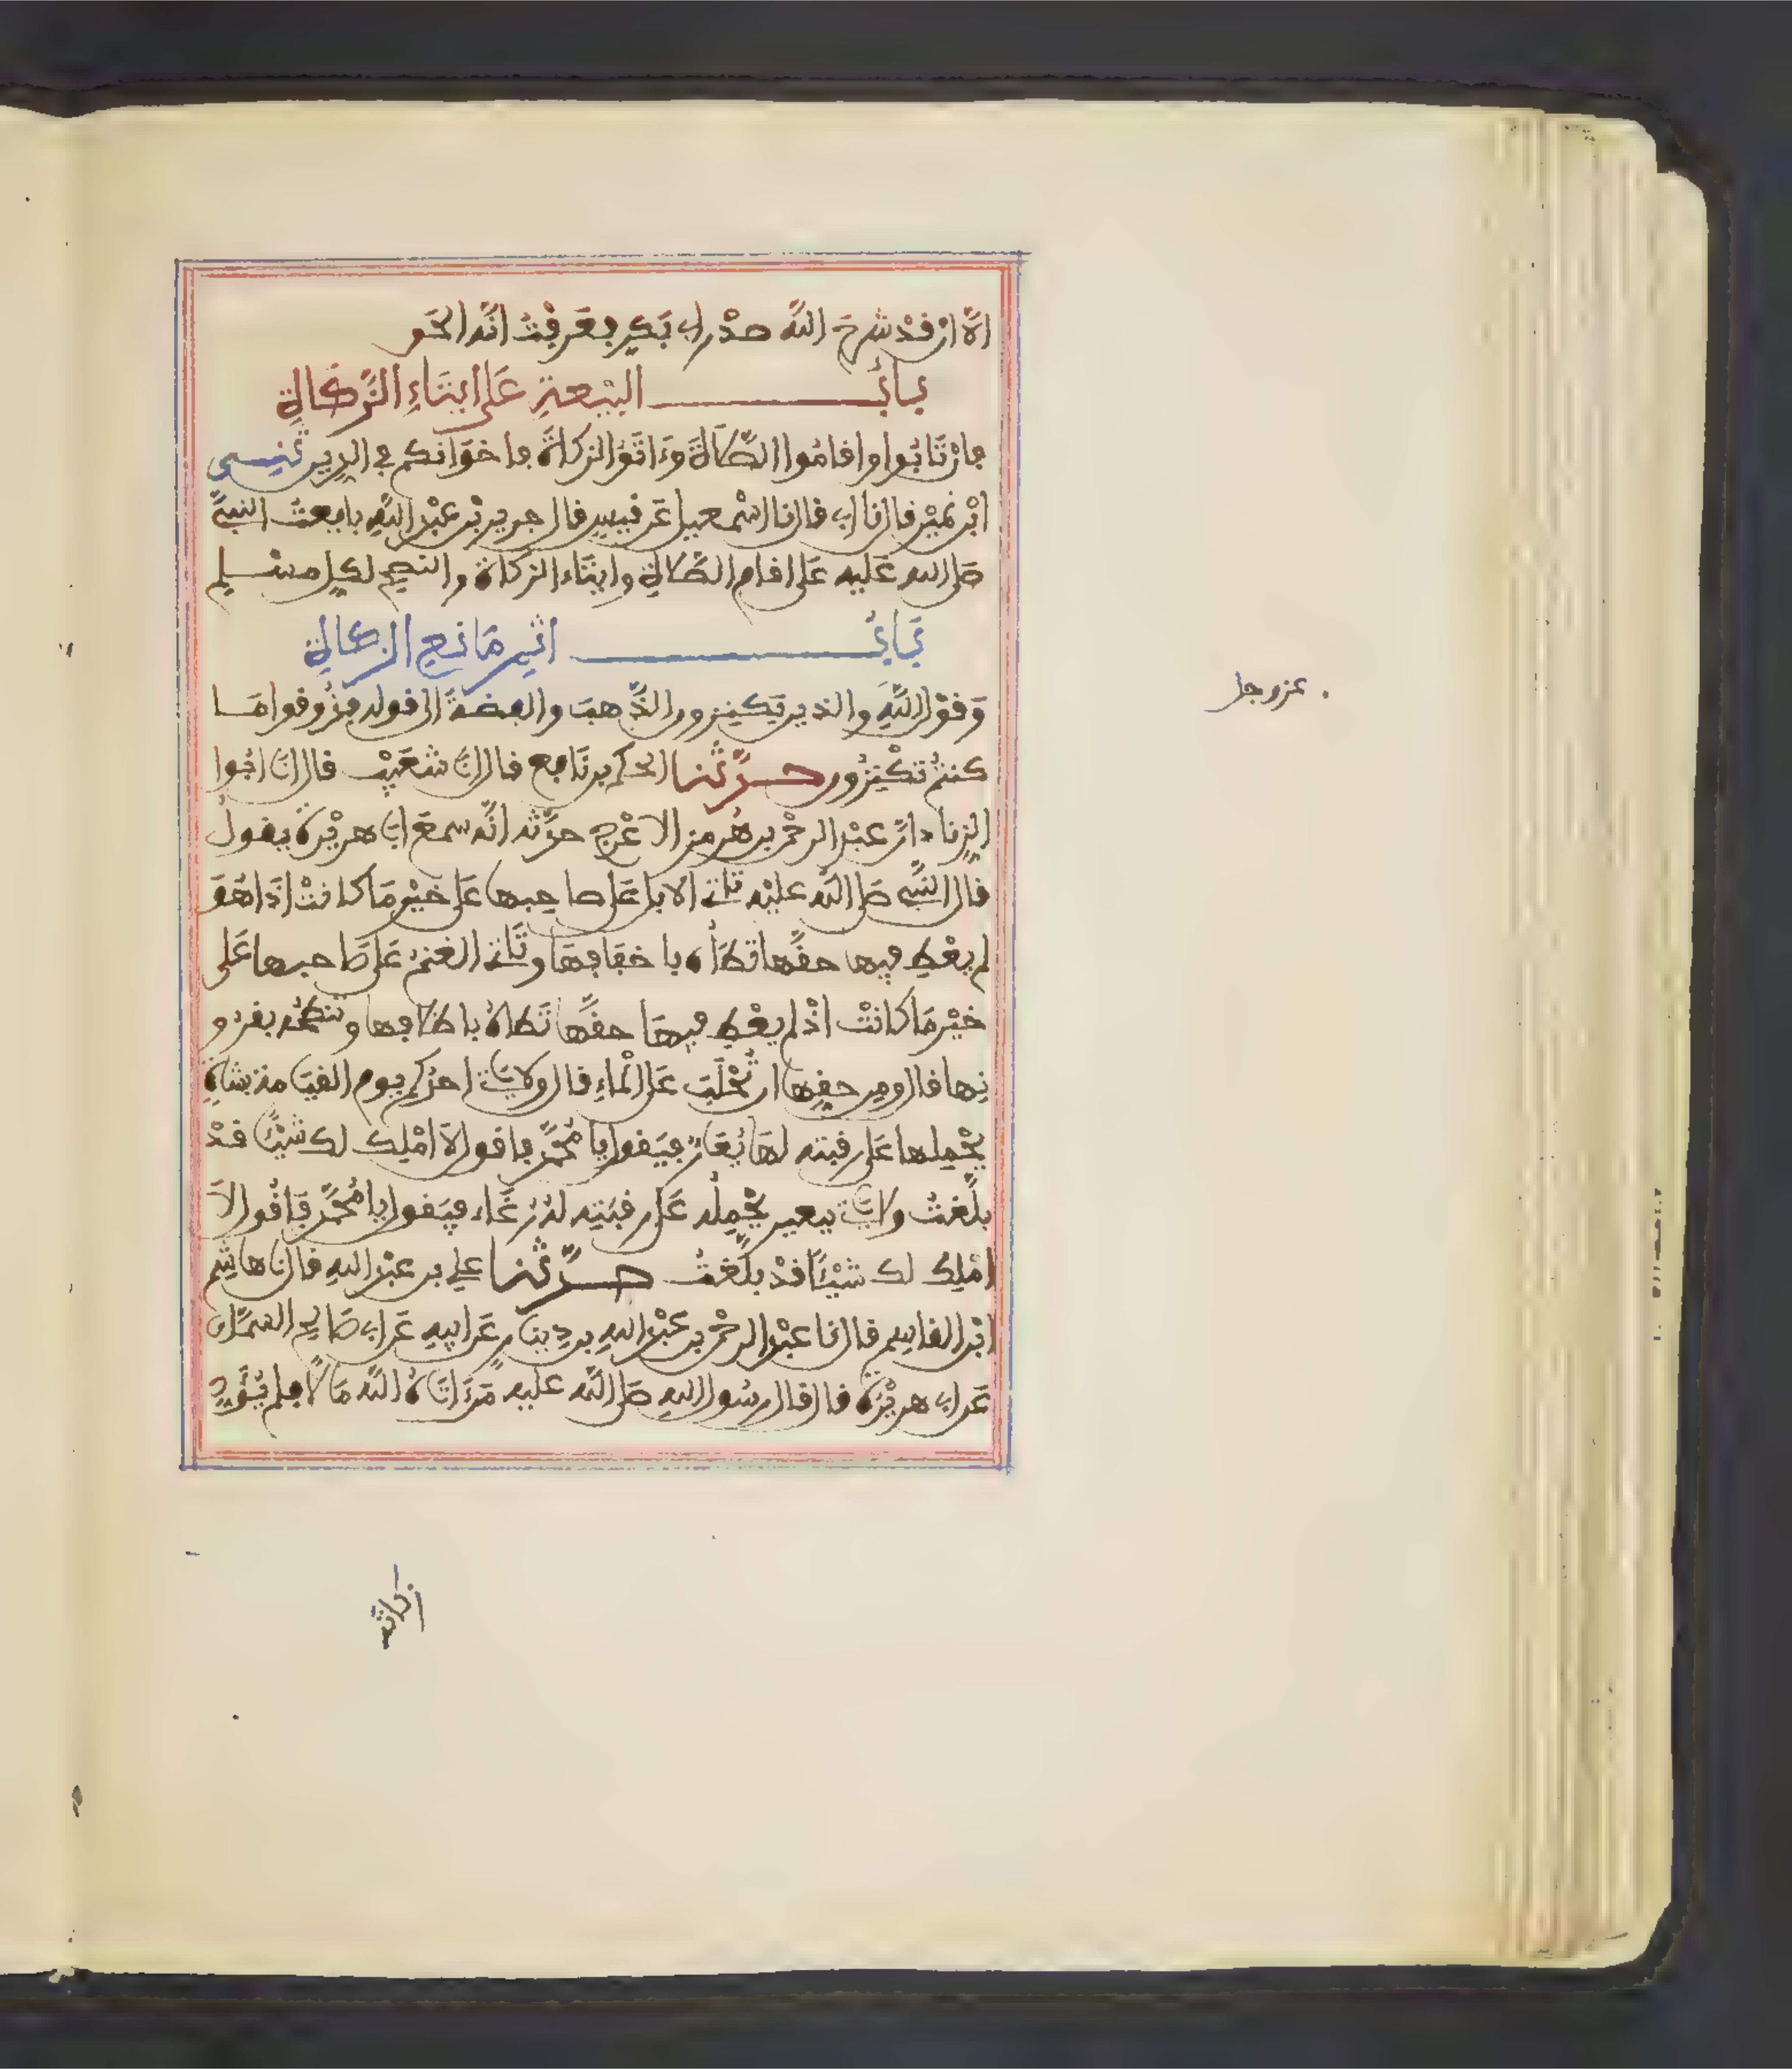 الَّا ان قدْ شرحَ اللَّه صدْر ابى بَكرٍ فعَرفْتُ انَّه الحَق
بَابُ البَيْعةِ عَلى ايتَاءِ الزَّكَاةِ
فان تَابُوا واقامُوا الصَّلَاةَ وءَاتَوُا الزكاةَ فاخوَانكم فى الدِين
ابْن نمَيْر قال نا ابى قال نا اسْمعيل عَن قيسٍ قال جرير بْن عبْد اللَّهِ بايعتُ النبىَّ
صَلى الله عَليه عَلى اقام الصَّلَاةِ وايتَاء الزكاة والنصح لكل مسْلِم
بَابُ اثمِ مَانع الزكاةِ
وَقوْل اللَّهِ والذين يَكنِزون الذَّهبَ والفضةَ الى قوله فذُوقوا مَا
. عز وجل
كنتمْ تكْنِزُون حدَّثنا الحكم بن نَافع قال انا شعَيْب قال انَا ابُوا
الزِناد انَّ عبْد الرحْمن بن هُرمز الاعْرج حدَّثه انَّه سمعَ ابا هريْرة يقولُ
قال النَّبى صَلى اللَّه عليْه تاتى الابل عَلى صاحِبها عَلى خيْرِ مَا كانتْ اذَا هُوَ
لم يعْطِ فيها حقَّها تطَأُه باخفَافِهَا وتَاتى الغنمُ عَلى صَاحبها عَلى
خيْر مَا كانَتْ اذْ لم يعْطِ فيهَا حقَّها تَطَاهُ باظلَافِها وتنطحُه بقرُو
نِها قال ومِن حقِها ان تُحْلَبَ عَلى الْمَاءِ قال ولا يَاتى احدُكم يوم القيَامة بشَاةٍ
يحْمِلها عَلى رقبته لهَا يُعَارٌ فيَقول يا مُحمَّد فاقول لَا امْلِك لك شيْئًا قدْ
بلَّغتُ ولا يَاتى ببعيرٍ يحْمِلُه عَلى رقبَتِه لهُ رُغَاء فيَقول يا مُحَمَّد فَاقُول لاَ
امْلِك لك شيْئًا قدْ بلَّغتُ حدَّثنا على بن عبْد اللهِ قال نَا هاشِم
ابْن القاسِم قال نا عبْد الرحْمن بن عبْد اللهِ بن دِينَارٍ عَن ابِيهِ عَن ابى صَالِح السَّمَّان
عَن ابى هريْرَة قال قال رسُول اللهِ صَلى اللَّه عليه مَن ءاتَاهُ اللَّه مَالًا فلم يُؤَدِ